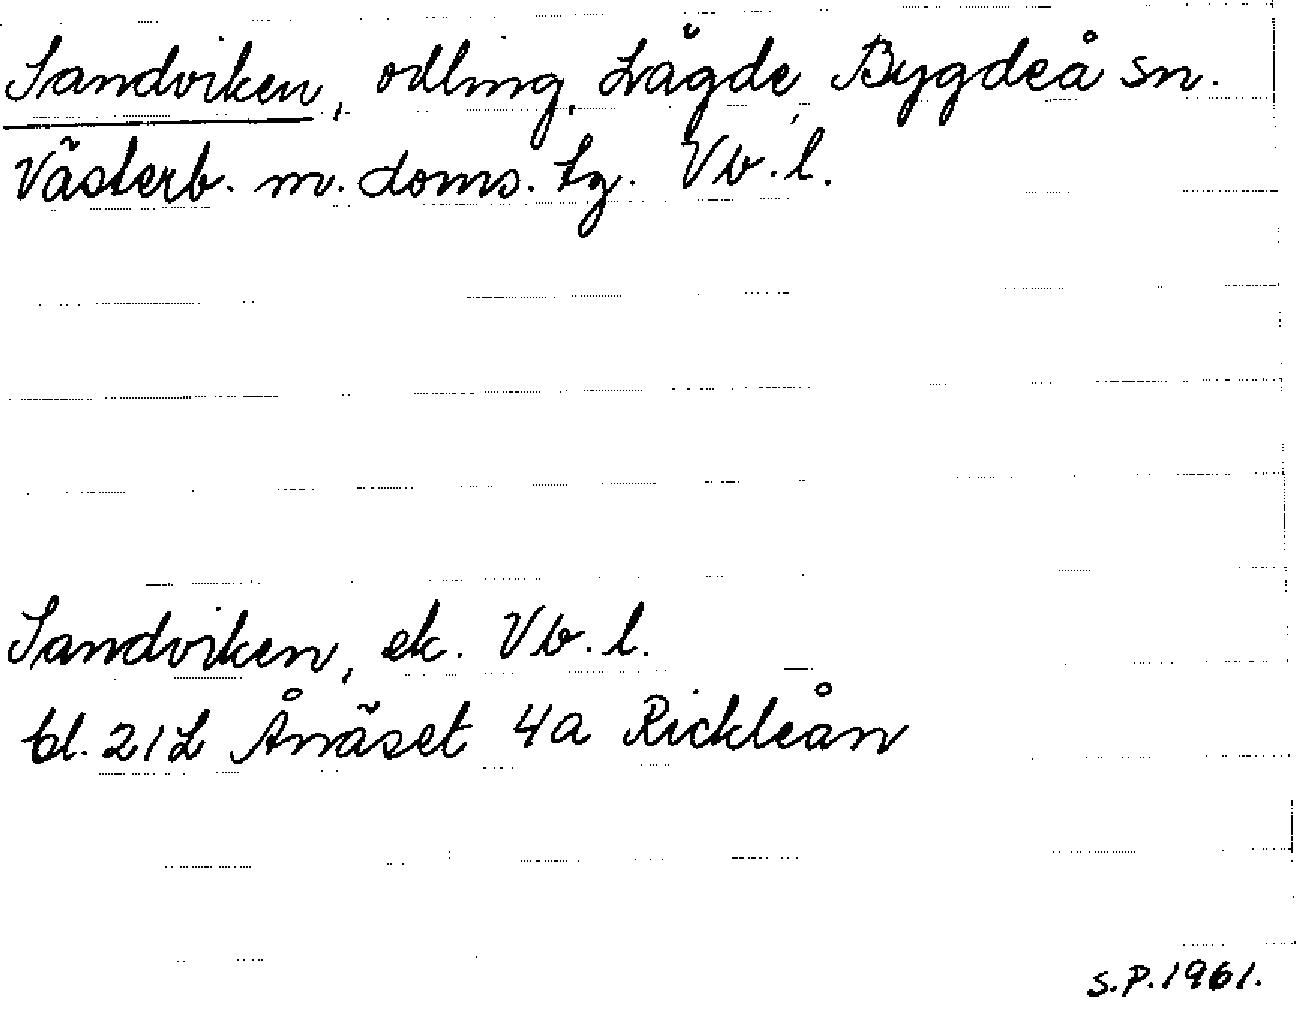 Sandviken, odling, Lågde, Bygdeå sn.
Västerb. m. doms. tg. Vb. l.
Sandviken, ek. Vb. l.
bl. 21L Ånäset 4a Rickleån
S.P. 1961.